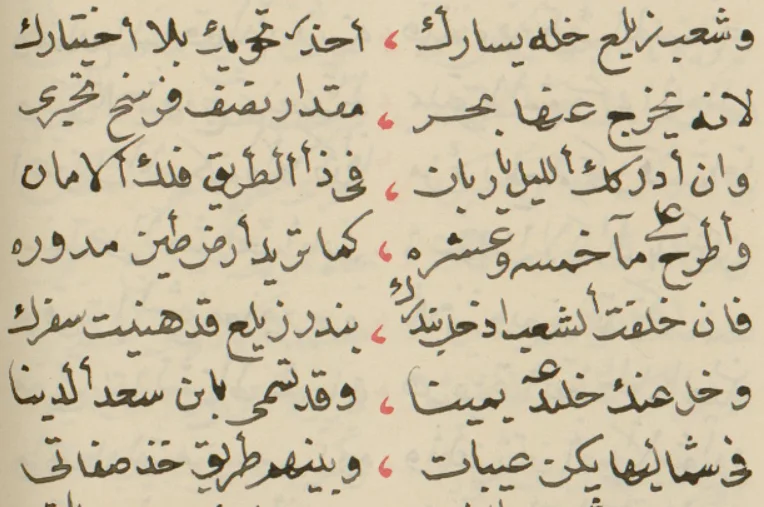 وشعب زيلع خله يسارك ، أحذر تحويك بلا أختيارك
لانه يخرج عنها بحر ، مقدار نصف فرسخ تجري
وان أدركك ألليل يا ربان ، في ذا ألطريق فلك ألامان
وأطرح على مآ خمسه وعشره ، كما تريد أرض طين مدوره
فان خلفت ألشعب ادخل بندرك ، بندر زيلع قد هنيت سفرك
وخل عنك يمينا ، وقد تسمى بابن سعد ألدينا
في شماليها يكن عيبات ، وبينهم طريق خذ صفاتي